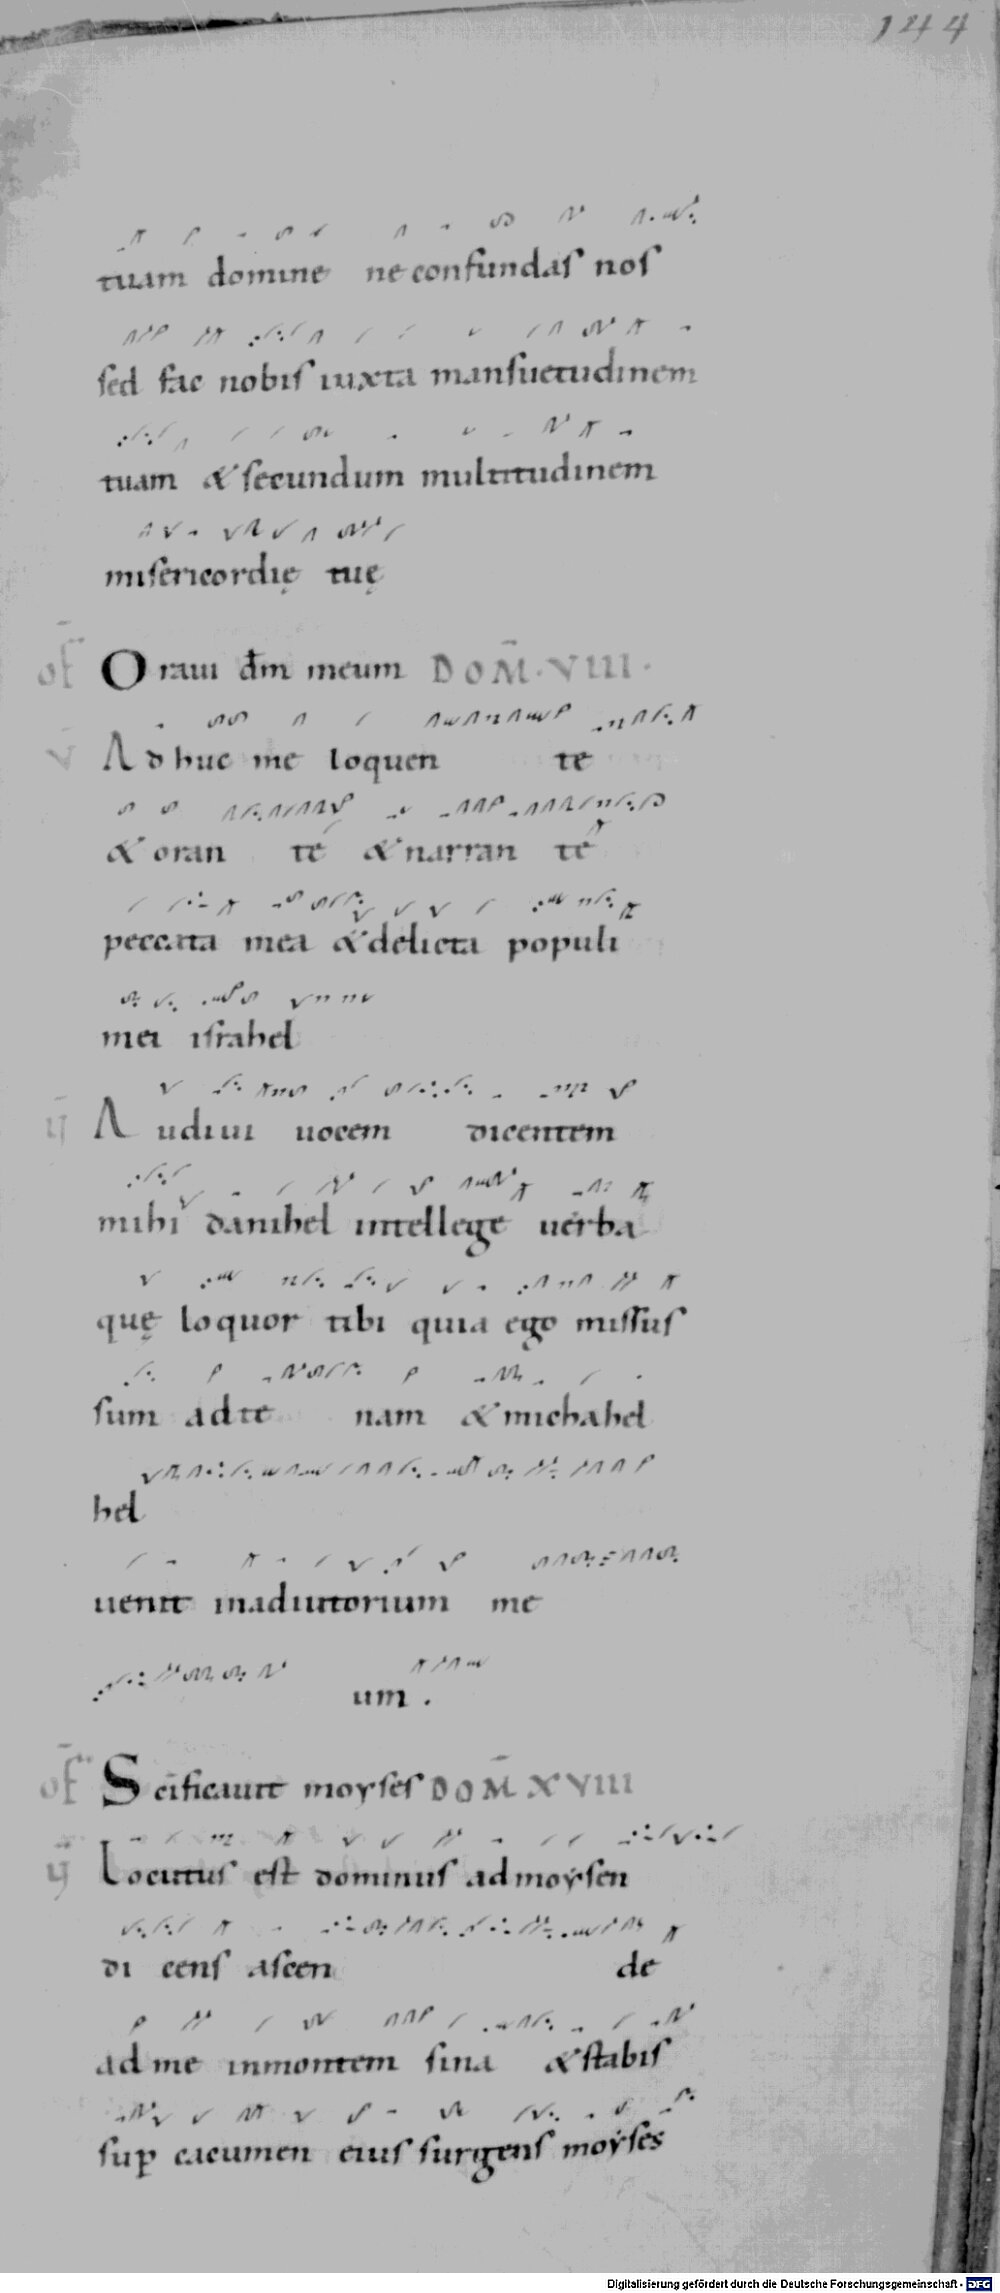 144
tuam domine ne confundas nos
sed fac nobis iuxta mansuetudinem
tuam & secundum multitudinem
misericordię tuę
of Oraui dm̄ meum DOM̄·VIII·
v̄ Adhuc me loquen te
& oran te & narran te
peccata mea & delicta populi
mei israhel
ij Audiui uocem dicentem
mihi danihel intellege uerba
quę loquor tibi quia ego missus
sum ad te nam & michahel
hel
uenit inadiutorium me
um .
of Scīficauit moyses DOM̄ XVIII
ÿ Locutus est dominus ad moẏsen
di cens ascen de
ad me inmontem sina & stabis
sup cacumen eius surgens moẏses
Digitalisierung gefördert durch die Deutsche Forschungsgemeinschaft - DFG